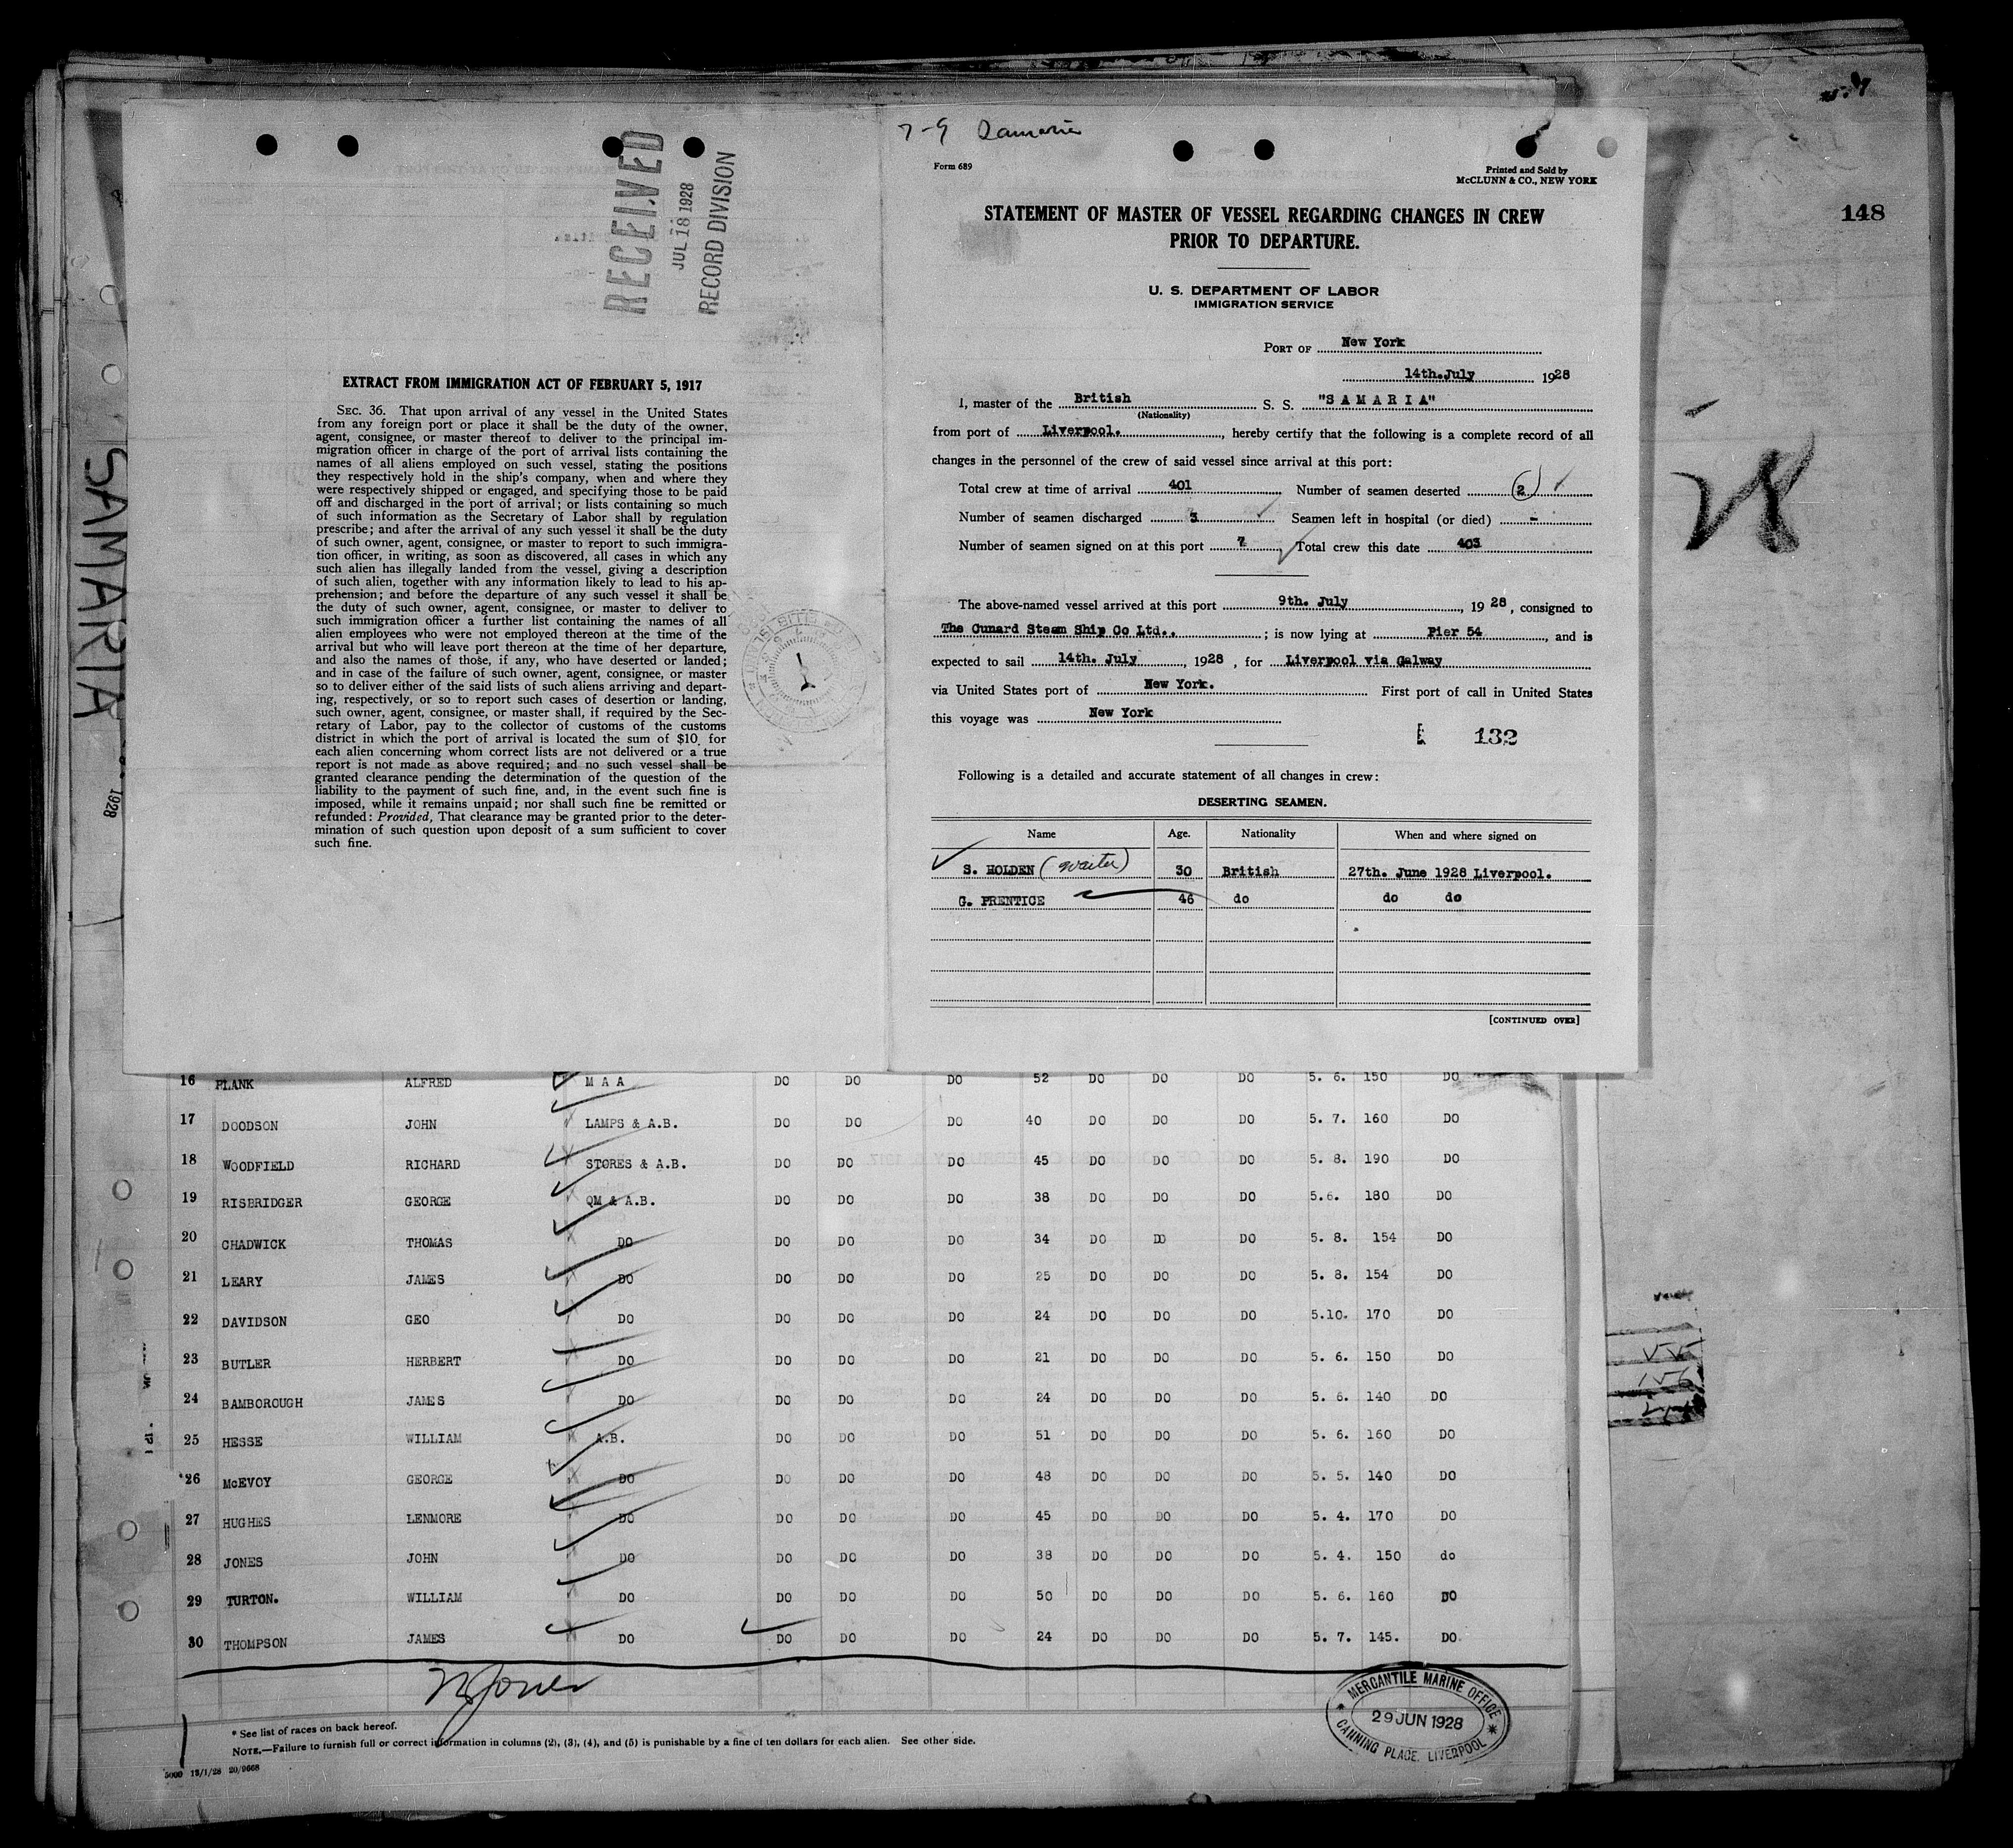 RECEIVED
JUL 18 1928
RECORD DIVISION
EXTRACT FROM IMMIGRATION ACT OF FEBRUARY 5, 1917
SEC. 36. That upon arrival of any vessel in the United States
from any foreign port or place it shall be the duty of the owner,
agent, consignee, or master thereof to deliver to the principal im-
migration officer in charge of the port of arrival lists containing the
names of all aliens employed on such vessel, stating the positions
they respectively hold in the ship's company, when and where they
were respectively shipped or engaged, and specifying those to be paid
off and discharged in the port of arrival; or lists containing so much
of such information as the Secretary of Labor shall by regulation
prescribe; and after the arrival of any such vessel it shall be the duty
of such owner, agent, consignee, or master to report to such immigra-
tion officer, in writing, as soon as discovered, all cases in which any
such alien has illegally landed from the vessel, giving a description
of such alien, together with any information likely to lead to his ap-
prehension; and before the departure of any such vessel it shall be
the duty of such owner, agent, consignee, or master to deliver to
such immigration officer a further list containing the names of all
alien employees who were not employed thereon at the time of the
arrival but who will leave port thereon at the time of her departure,
and also the names of those, if any, who have deserted or landed;
and in case of the failure of such owner, agent, consignee, or master
so to deliver either of the said lists of such aliens arriving and depart-
ing, respectively, or so to report such cases of desertion or landing,
such owner, agent, consignee, or master shall, if required by the Sec-
retary of Labor, pay to the collector of customs of the customs
district in which the port of arrival is located the sum of $10 for
each alien concerning whom correct lists are not delivered or a true
report is not made as above required; and no such vessel shall be
granted clearance pending the determination of the question of the
liability to the payment of such fine, and, in the event such fine is
imposed, while it remains unpaid; nor shall such fine be remitted or
refunded: Provided, That clearance may be granted prior to the deter-
mination of such question upon deposit of a sum sufficient to cover
such fine.
SAMARIA
1928
7-9 Samaria
Form 689
Printed and Sold by
McCLUNN & CO., NEW YORK
STATEMENT OF MASTER OF VESSEL REGARDING CHANGES IN CREW
PRIOR TO DEPARTURE.
U. S. DEPARTMENT OF LABOR
IMMIGRATION SERVICE
PORT OF New York
14th.July 1928
I, master of the British S. S. "SAMARIA"
(Nationality)
from port of Liverpool. , hereby certify that the following is a complete record of all
changes in the personnel of the crew of said vessel since arrival at this port:
Total crew at time of arrival 401 Number of seamen deserted 2
Number of seamen discharged 3 Seamen left in hospital (or died) -
Number of seamen signed on at this port 7 Total crew this date 403
The above-named vessel arrived at this port 9th. July , 1928, consigned to
The Cunard Steam Ship Co Ltd.. ; is now lying at Pier 54 , and is
expected to sail 14th. July , 1928, for Liverpool via Galway
via United States port of New York. First port of call in United States
this voyage was New York
132
Following is a detailed and accurate statement of all changes in crew:
DESERTING SEAMEN.
Name Age. Nationality When and where signed on
S. HOLDEN (Waiter) 30 British 27th. June 1928 Liverpool.
G. PRENTICE 46 do do do
[CONTINUED OVER]
148
28
16 PLANK ALFRED M A A DO DO DO 52 DO DO DO 5. 6. 150 DO
17 DOODSON JOHN LAMPS & A.B. DO DO DO 40 DO DO DO 5. 7. 160 DO
18 WOODFIELD RICHARD STORES & A.B. DO DO DO 45 DO DO DO 5. 8. 190 DO
19 RISBRIDGER GEORGE QM & A.B. DO DO DO 38 DO DO DO 5.6. 180 DO
20 CHADWICK THOMAS DO DO DO DO 34 DO DO DO 5. 8. 154 DO
21 LEARY JAMES DO DO DO DO 25 DO DO DO 5. 8. 154 DO
22 DAVIDSON GEO DO DO DO DO 24 DO DO DO 5.10. 170 DO
23 BUTLER HERBERT DO DO DO DO 21 DO DO DO 5. 6. 150 DO
24 BAMBOROUGH JAMES DO DO DO DO 24 DO DO DO 5. 6. 140 DO
25 HESSE WILLIAM A.B. DO DO DO 51 DO DO DO 5. 6. 160 DO
26 McEVOY GEORGE DO DO DO DO 48 DO DO DO 5. 5. 140 DO
27 HUGHES LENMORE DO DO DO DO 45 DO DO DO 5. 4. 170 DO
28 JONES JOHN DO DO DO DO 38 DO DO DO 5. 4. 150 do
29 TURTON. WILLIAM DO DO DO DO 50 DO DO DO 5. 6. 160 DO
30 THOMPSON JAMES DO DO DO DO 24 DO DO DO 5. 7. 145. DO.
MERCANTILE MARINE OFFICE
29 JUN 1928
CANNING PLACE, LIVERPOOL
* See list of races on back hereof.
NOTE.—Failure to furnish full or correct information in columns (2), (3), (4), and (5) is punishable by a fine of ten dollars for each alien. See other side.
5000 13/1/28 20/9668